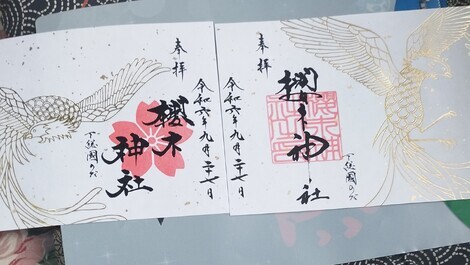 下総國のだ
櫻木神社
奉拝
令和六年九月二十七日
令和六年九月二十七日
奉拝
櫻木
神社
下総國のだ